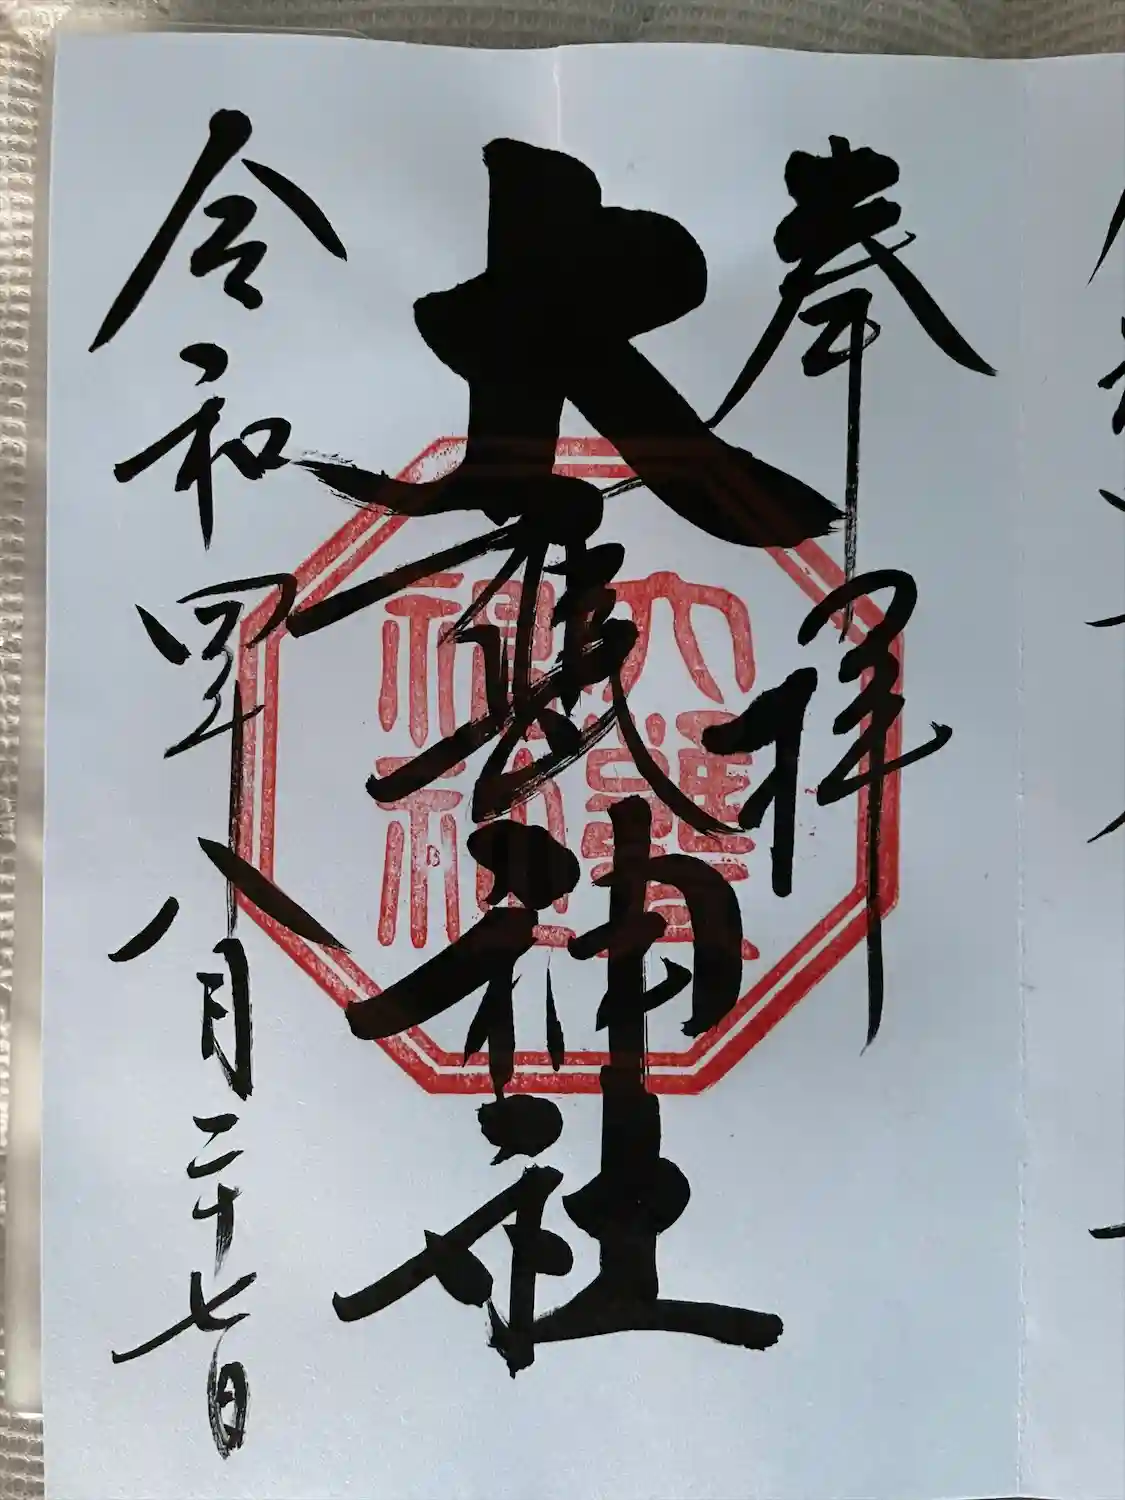 奉拝
大甕神社
大甕
神社
令和四年八月二十七日